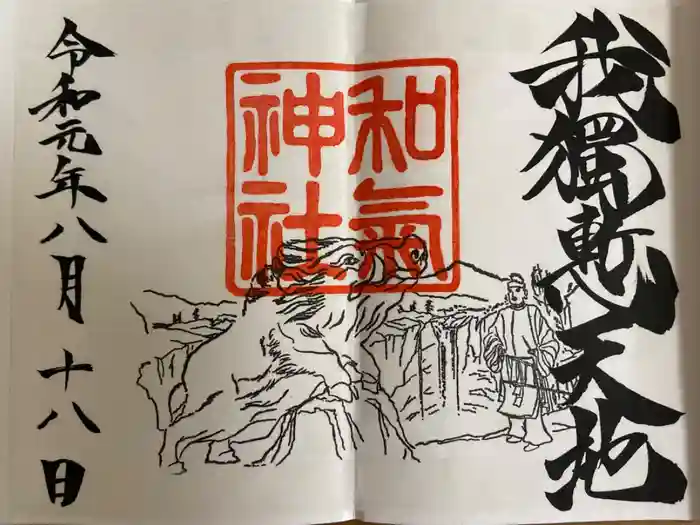 我獨慙天地
和氣
神社
令和元年八月十八日